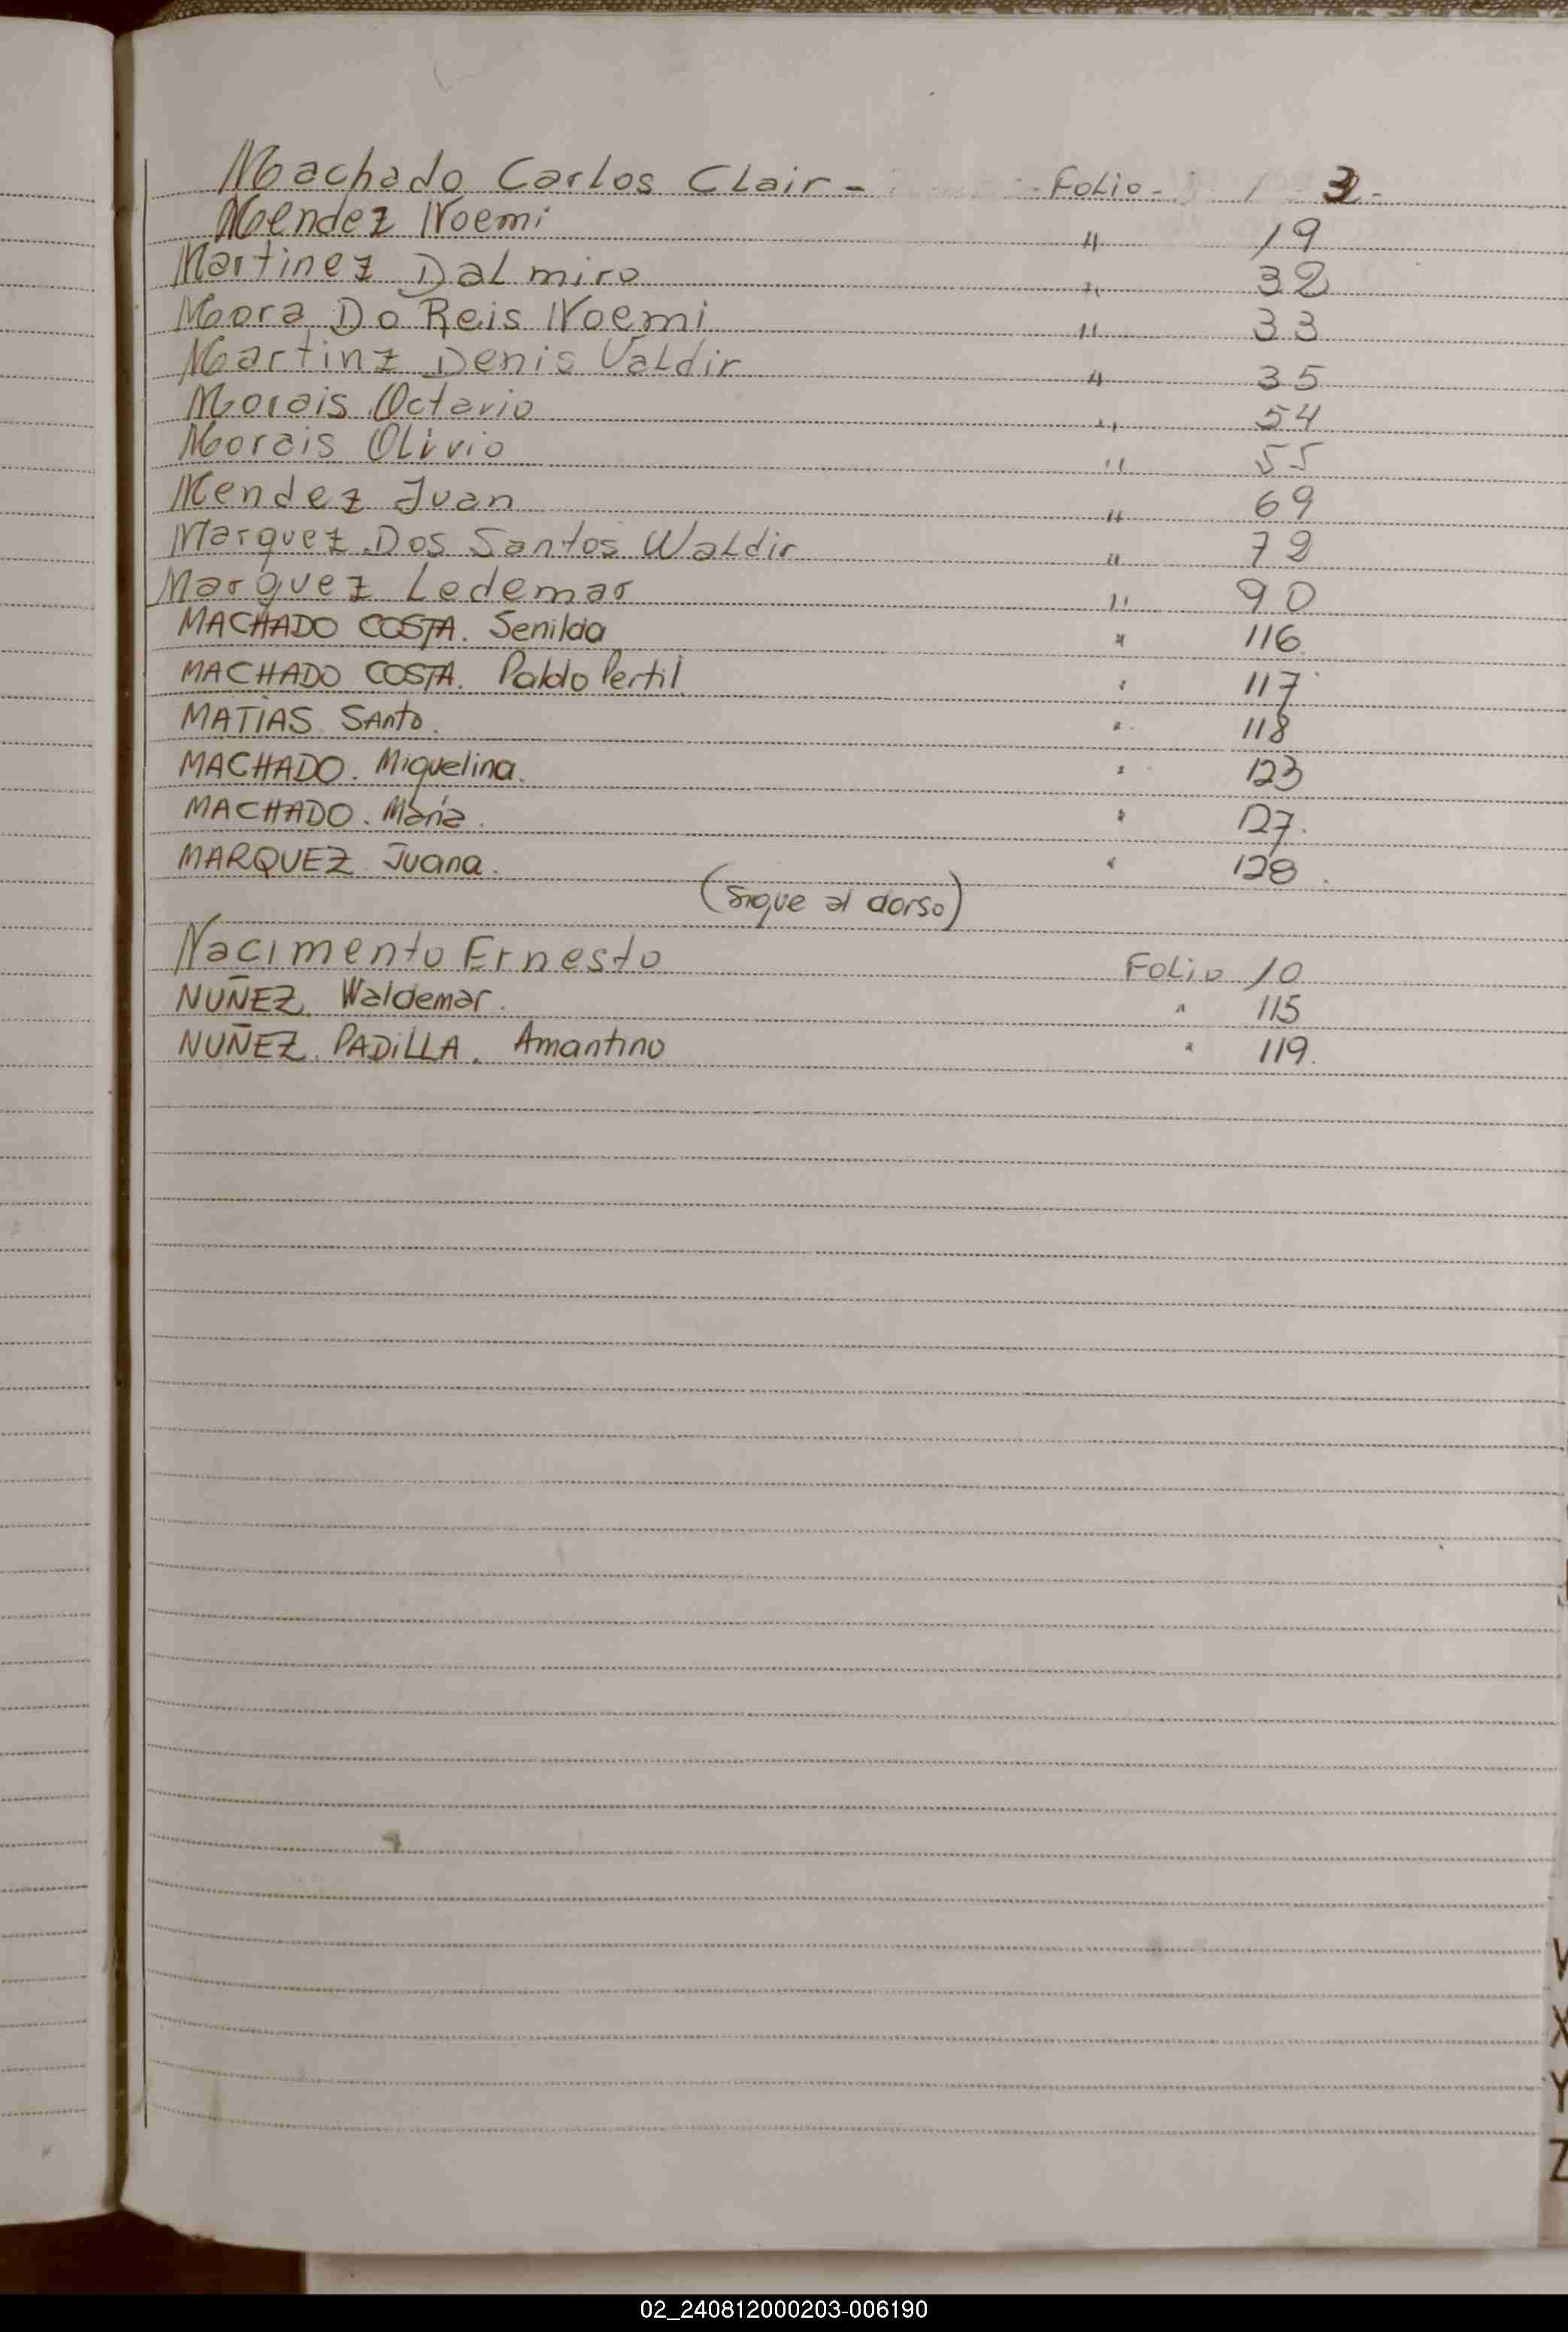 Machado Carlos Clair - Folio - 3 -
Mendez Noemi " 19
Martinez Dalmiro " 32
Moora Do Reis Noemi " 33
Martinz Denis Valdir " 35
Morais Octavio " 54
Morais Olivio " 55
Mendez Juan " 69
Marquez Dos Santos Waldir " 72
Marquez Ledemar " 90
MACHADO COSTA. Senilda " 116.
MACHADO COSTA. Paldo Pertil " 117
MATIAS SAnto. " 118
MACHADO. Miquelina. " 123
MACHADO. María. " 127.
MARQUEZ Juana. " 128.
(Sigue al dorso)
Nacimento Ernesto Folio 10
NUÑEZ, Waldemar. " 115
NUÑEZ. PADiLLA. Amantino " 119.
V
X
Y
Z
02_240812000203-006190